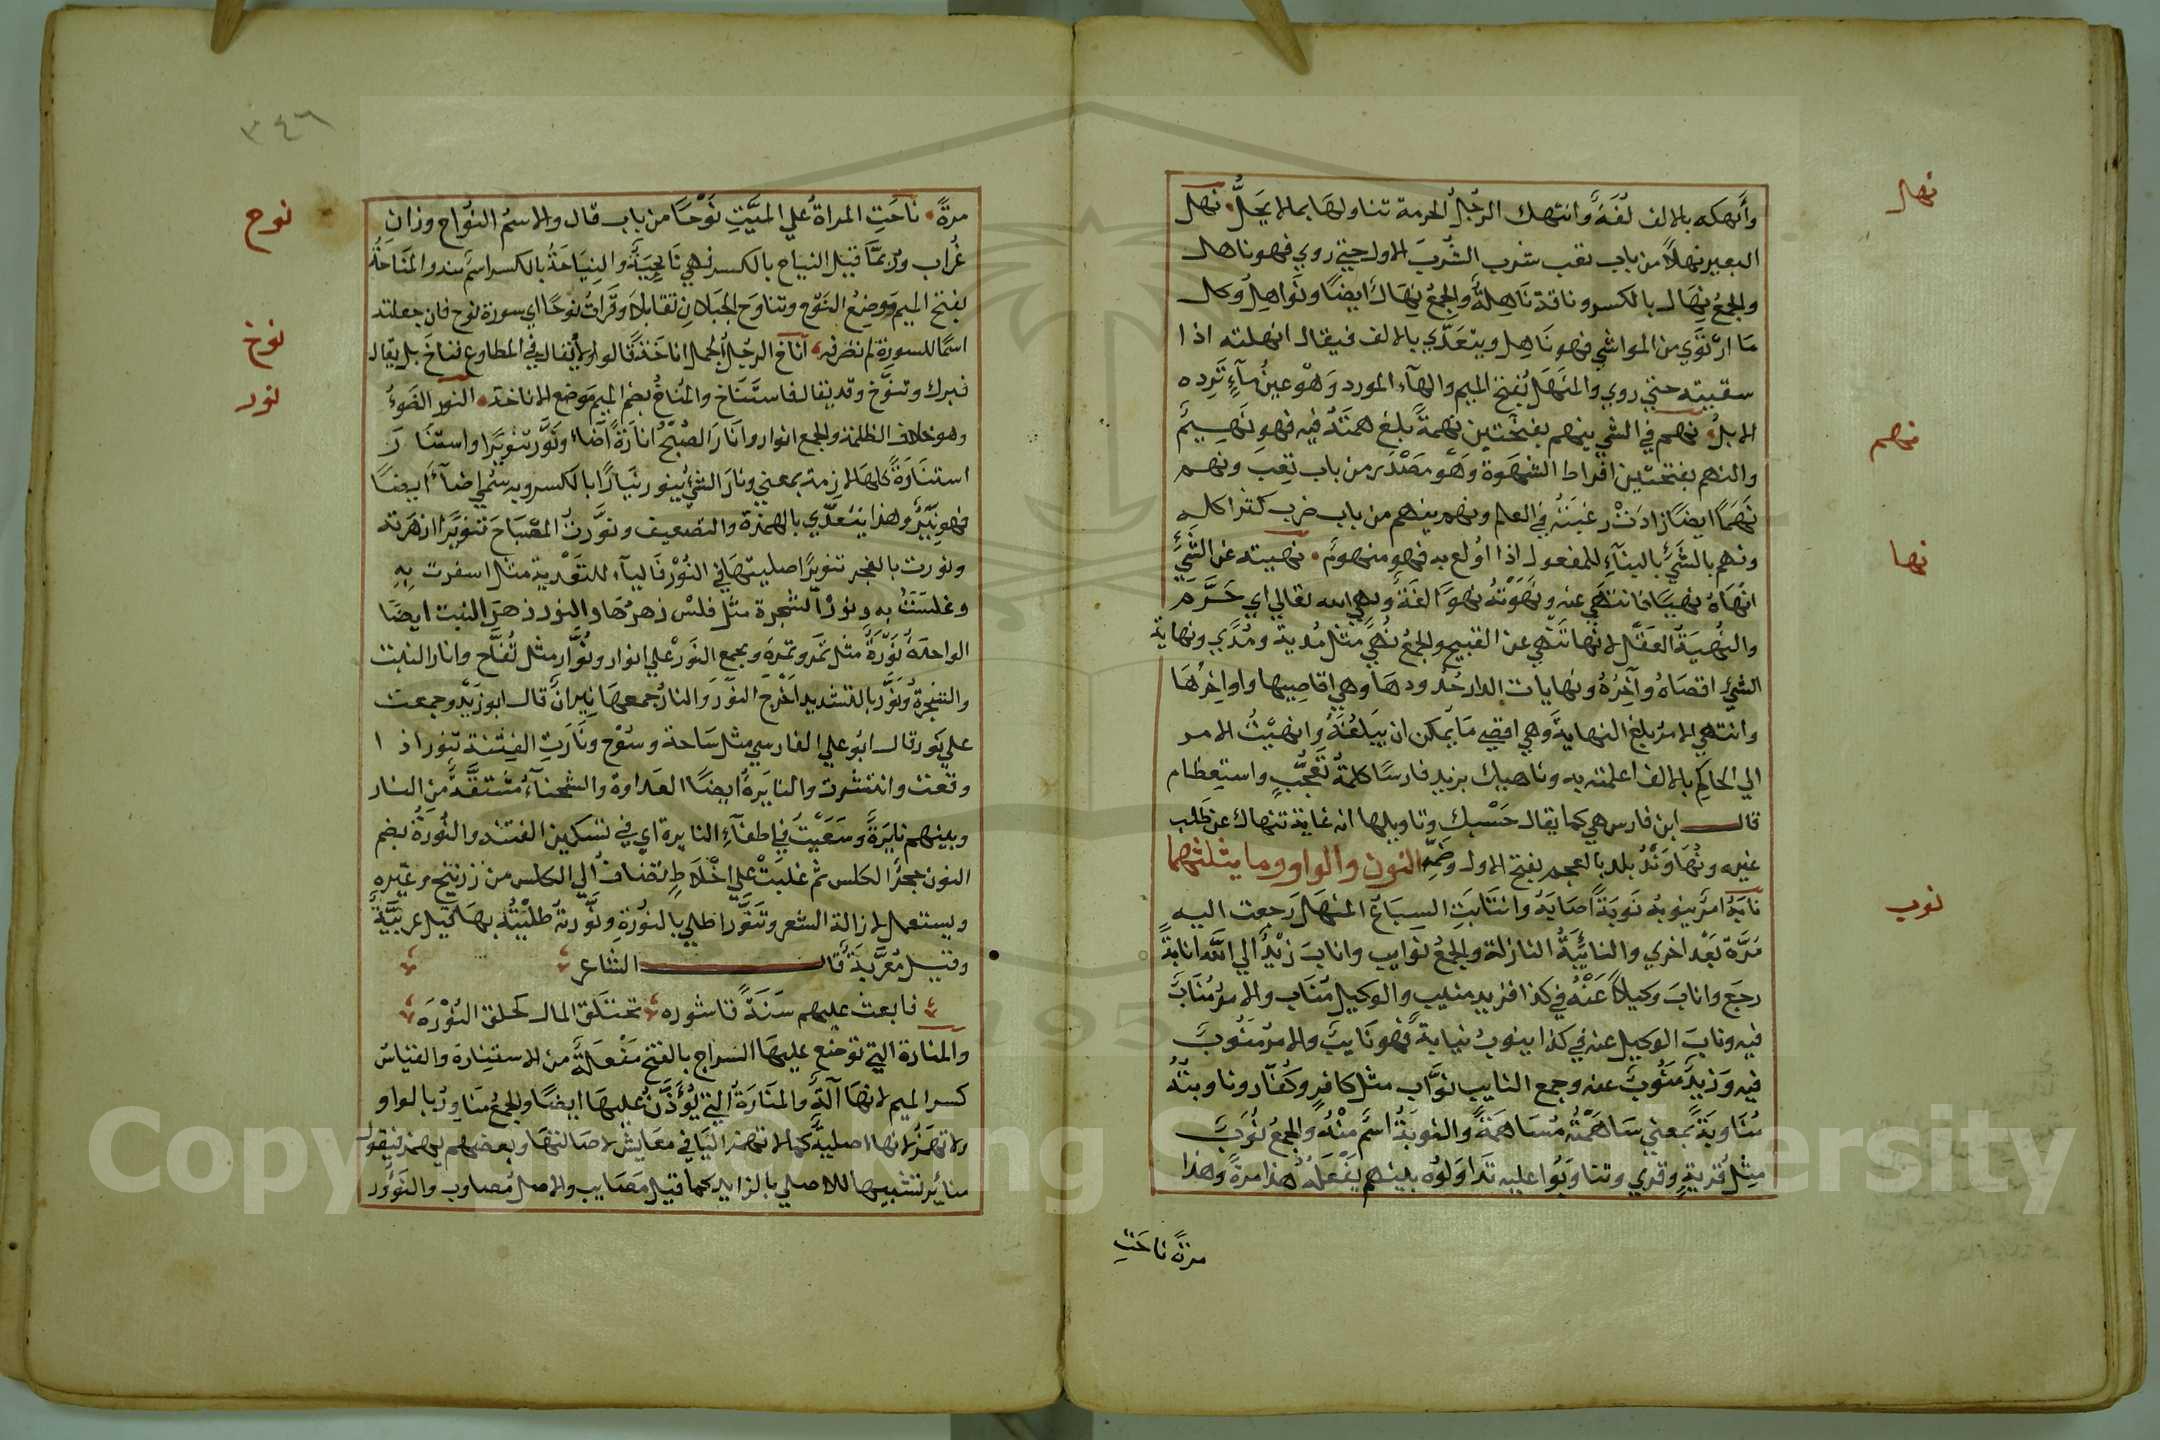 وأنهكه بالالف لُغَة وانتهك الرجُل الحرمة تناولها بما لا يَحِلُّ نهل
البعير نهلاً من باب تعب شرب الشُرب الاول حتي روي فهو ناهل
والجمع نِهَال بالكسر وناقة نَاهِلة والجمع نِهَال ايضا ونَواهل وكل
مَا ارتوَي من المواشي فهو نَاهِل ويتعَدَّي بالالف فيقال انهلته اذا
سقيته حتي روي والمنهَل بفتح الميم والهآء المورد وَهْو عينُ مآءٍ تَرِده
الابلُ نهم في الشي ينهم بفتحتين نهمةً بلغ همتَهُ فيه فهو نَهِيمٌ
والنهم بفتحتين افراط الشهَوة وَهْو مَصْدَر من باب تعِب ونهم
نَهَمًا ايضًا زادَتْ رغبَتُه في العلم ونهم ينهم من باب ضرب كثر اكله
ونهم بالشَيْ بالبنآءِ للمفعول اذا اُولع به فهو منهومٌ نهيته عن الشَيْ
انْهَاهُ نهيًا فانتهَي عنه ونهَوْتُه نهْوًا لغَةٌ ونهي الله تعالي اي حَرَّمَ
والنُهيَةُ العَقْل لانها تَنْهي عن القبيح والجمعُ نُهيً مثل مُديةٌ ومُدًي ونهاية
الشيْ اقصَاهُ وآخِرُهُ ونهايات الدار حُدُودهَا وهي اقاصِيها واواخِرُهَا
وانتهي الامرُ بلغ النهايةَ وَهي اقصي مَا يمكن ان يَبلُغَهُ وانهَيْتُ الامر
الي الحاكم بالالف اعلمته به وناهيك بزيد فارسًا كلمةُ تعَجُّبٍ واستعظام
قال ابن فارس هي كما يقال حَسْبك وتاويلها انه غاية تنهاك عن طَلب
غيره ونُهاوَنْدُ بلد بالعجم بفتح الاول وضمِّه النون والواو وما يثلثهما
نابَهُ امرٌ ينوبُه نَوبَةً اصَابَهُ وانتَابَتِ السِبَاعُ المنهَل رَجعت اليه
مَرَّة بَعْد اخري والنائِبَةُ النازلة والجمعُ نوايب وانابَ زيْدٌ الي اللهِ انابةً
رجعَ وانابَ وكيلاً عَنْهُ في كذا فزيد منيب والوكيل مُنَاب والامرُ مُنَابٌ
فيه ونابَ الوكيل عنه في كذا ينوبُ نيابة فهو نَايبٌ والامرُ مَنُوبٌ
فيه وَزيدٌ مَنُوبٌ عنه وجمع النايب نوَّاب مثل كافرٍ وكُفّار وناوبتُهُ
مُنَاوبَةً بمعني سَاهَمْتُه مُسَاهمَةً والنوبَةُ اسمٌ منْهُ والجمعُ نُوَبٌ
مثل قُريةٍ وقري وتناوَبُوا عليه تَداوَلوُه بينهم يَفْعَلهُ هذا مرة وهذا
مرةً ناحَتِ
نهل
نهم
نها
نوب
٣٤٦
مرةً ناحَتِ المراةُ علي الميَّتِ نَوْحًا من باب قال والاسمُ النُوَاح وزان
غُراب ورُبمَّا قيل النياح بالكسر فهي نَايحةٌ والنِيَاحَةُ بالكسر اسمٌ منه والمَنَاحَةُ
بفتح الميم مَوضِعُ النَوْح وتناوَحَ الجبَلان تقابلاَ وقَرأتُ نوحًا اي سورة نوح فان جعلته
اسمًا للسورة لم تصرفه اناخ الرجُل الجمل اناخَةً قالوا ولا يُقال في المطاوع فناخ بل يقال
فبرك وتنوَّخ وقد يقال فاستَنَاخ والمُنَاخُ بضم الميم مَوضع الاناخة النور الضَوءُ
وهو خلاف الظلمة والجمع انوار وانارَ الصُبْحُ انارَةً اضآءَ ونَوَّر تنويرًا واستنَارَ
استنَارَةً كلها لازمة بمعني ونارَ الشيُ ينور نيَارًا بالكسر وبه سُمي اضآءَ ايضًا
فهو نَيِّرٌ وهذا يتعَدَّي بالهمزة والتضعيف ونَوَّرتُ المصْباحَ تنويرًا ازهَرته
ونورت بالفجر تنويرًا صليتهَا في النُوْر فالبآء للتعْدية مثل اسفرت بِهِ
وغلسَتُ به ونَوْر الشجرة مثل فلس زهرُهَا والنور زهرَ النبت ايضَا
الواحدَةُ نَوْرَةٌ مثل تَمر وتمرة ويجمع النَور علي انوار ونُوَّار مثل تُفَّاح وانار النبت
والشجرةُ ونَوَّر بالتشديد اخْرَج النَوْرَ والنارُ جمعهَا نِيرانٌ قال ابو زَيْد وجمعت
علي نور قال ابُو علي الفارسي مثل سَاحة وسُوْح ونَارَتِ الفِتنة تنور اذا
وقعت وانتشرت والنايرةُ ايضًا العَداوة والشحنآءُ مُشتقةٌ من النار
وبينهم نايرةٌ وسَعَيْتُ في اطفآءِ النايرة اي في تسكين الفتنه والنُورَةُ بضم
النون حجَرُ الكلس ثم غلبَتْ علي اخْلاطٍ تضاف الي الكلس من زرنيخ وغيرهِ
ويستعمل لازالة الشعر وتَنَوَّر اطلي بالنورَةِ ونَوَّرتهُ طليْتُه بهَا قيل عربيَّةٌ
وقيل مُعَرَّبَةٌ قال الشاعر
فابعث عليهم سَنَةً قاشوره تحتلق المال كحلق النُوْرَه
والمنارة التي توضع عليهَا السراج بالفتح مَفْعَلةٌ من الاستِنارة والقياسُ
كسر الميم لانهَا آلةٌ والمنَارَةُ التي يُؤَذَّنُ عليهَا ايضًا والجمعُ مناوِرُ بالواو
ولا تهمَزُ لانها اصلية كما لا تهمز اليآ في معَايش لاصالتهَا وبعضهم يهمز فيقول
منائر تشبيها للاصلي بالزايد كما قيل مَصَايب والاصل مُصاوب والنَؤُور
نوح
نوخ
نور
Copyright © King Saud University
1957